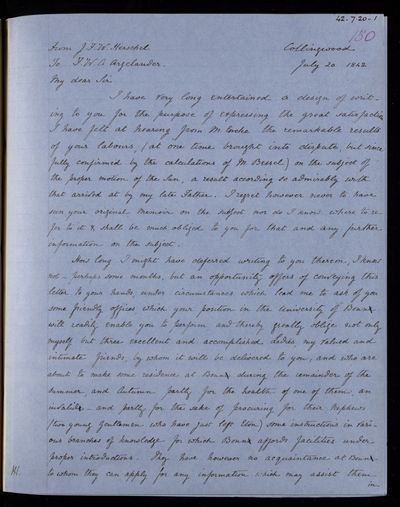 42-7-20-1
180
From J.F.W. Herschel
Collingwood
To F.W.A. Argelander.
July 20 1842
My dear Sir
I have very long entertained a design of writ-
ing to you for the purpose of expressing the great satisfaction
I have felt at hearing from M. Encke the remarkable results
of your labours, (at one time brought into dispute, but since
fully confirmed by the calculations of M. Bessel) on the subject of
the proper motion of the Sun, a result according so admirably with
that arrived at by my late Father. I regret however never to have
seen your original memoir on the subject nor do I know where to re-
fer to it &, shall be much obliged to you for that and any further
information on the subject.
How long I might have deferred writing to you thereon, I know
not - perhaps some months, but an opportunity offers of conveying this
letter to your hands, under circumstances which lead me to ask of you
some friendly offices which your position in the University of Bonn
will readily enable you to perform and thereby greatly oblige not only
myself but three excellent and accomplished ladies my valued and
intimate friends, by whom it will be delivered to you, and who are
about to make some residence at Bonn during the remainder of the
Summer and Autumn partly for the health of one of them, an
invalid, - and partly for the sake of procuring for their nephews
(two young gentlemen who have just left Eton) some instructions in vari-
ous branches of knowledge for which Bonn affords facilities under
proper introductions. They have however no acquaintance at Bonn
to whom they can apply for any information which may assist them
in